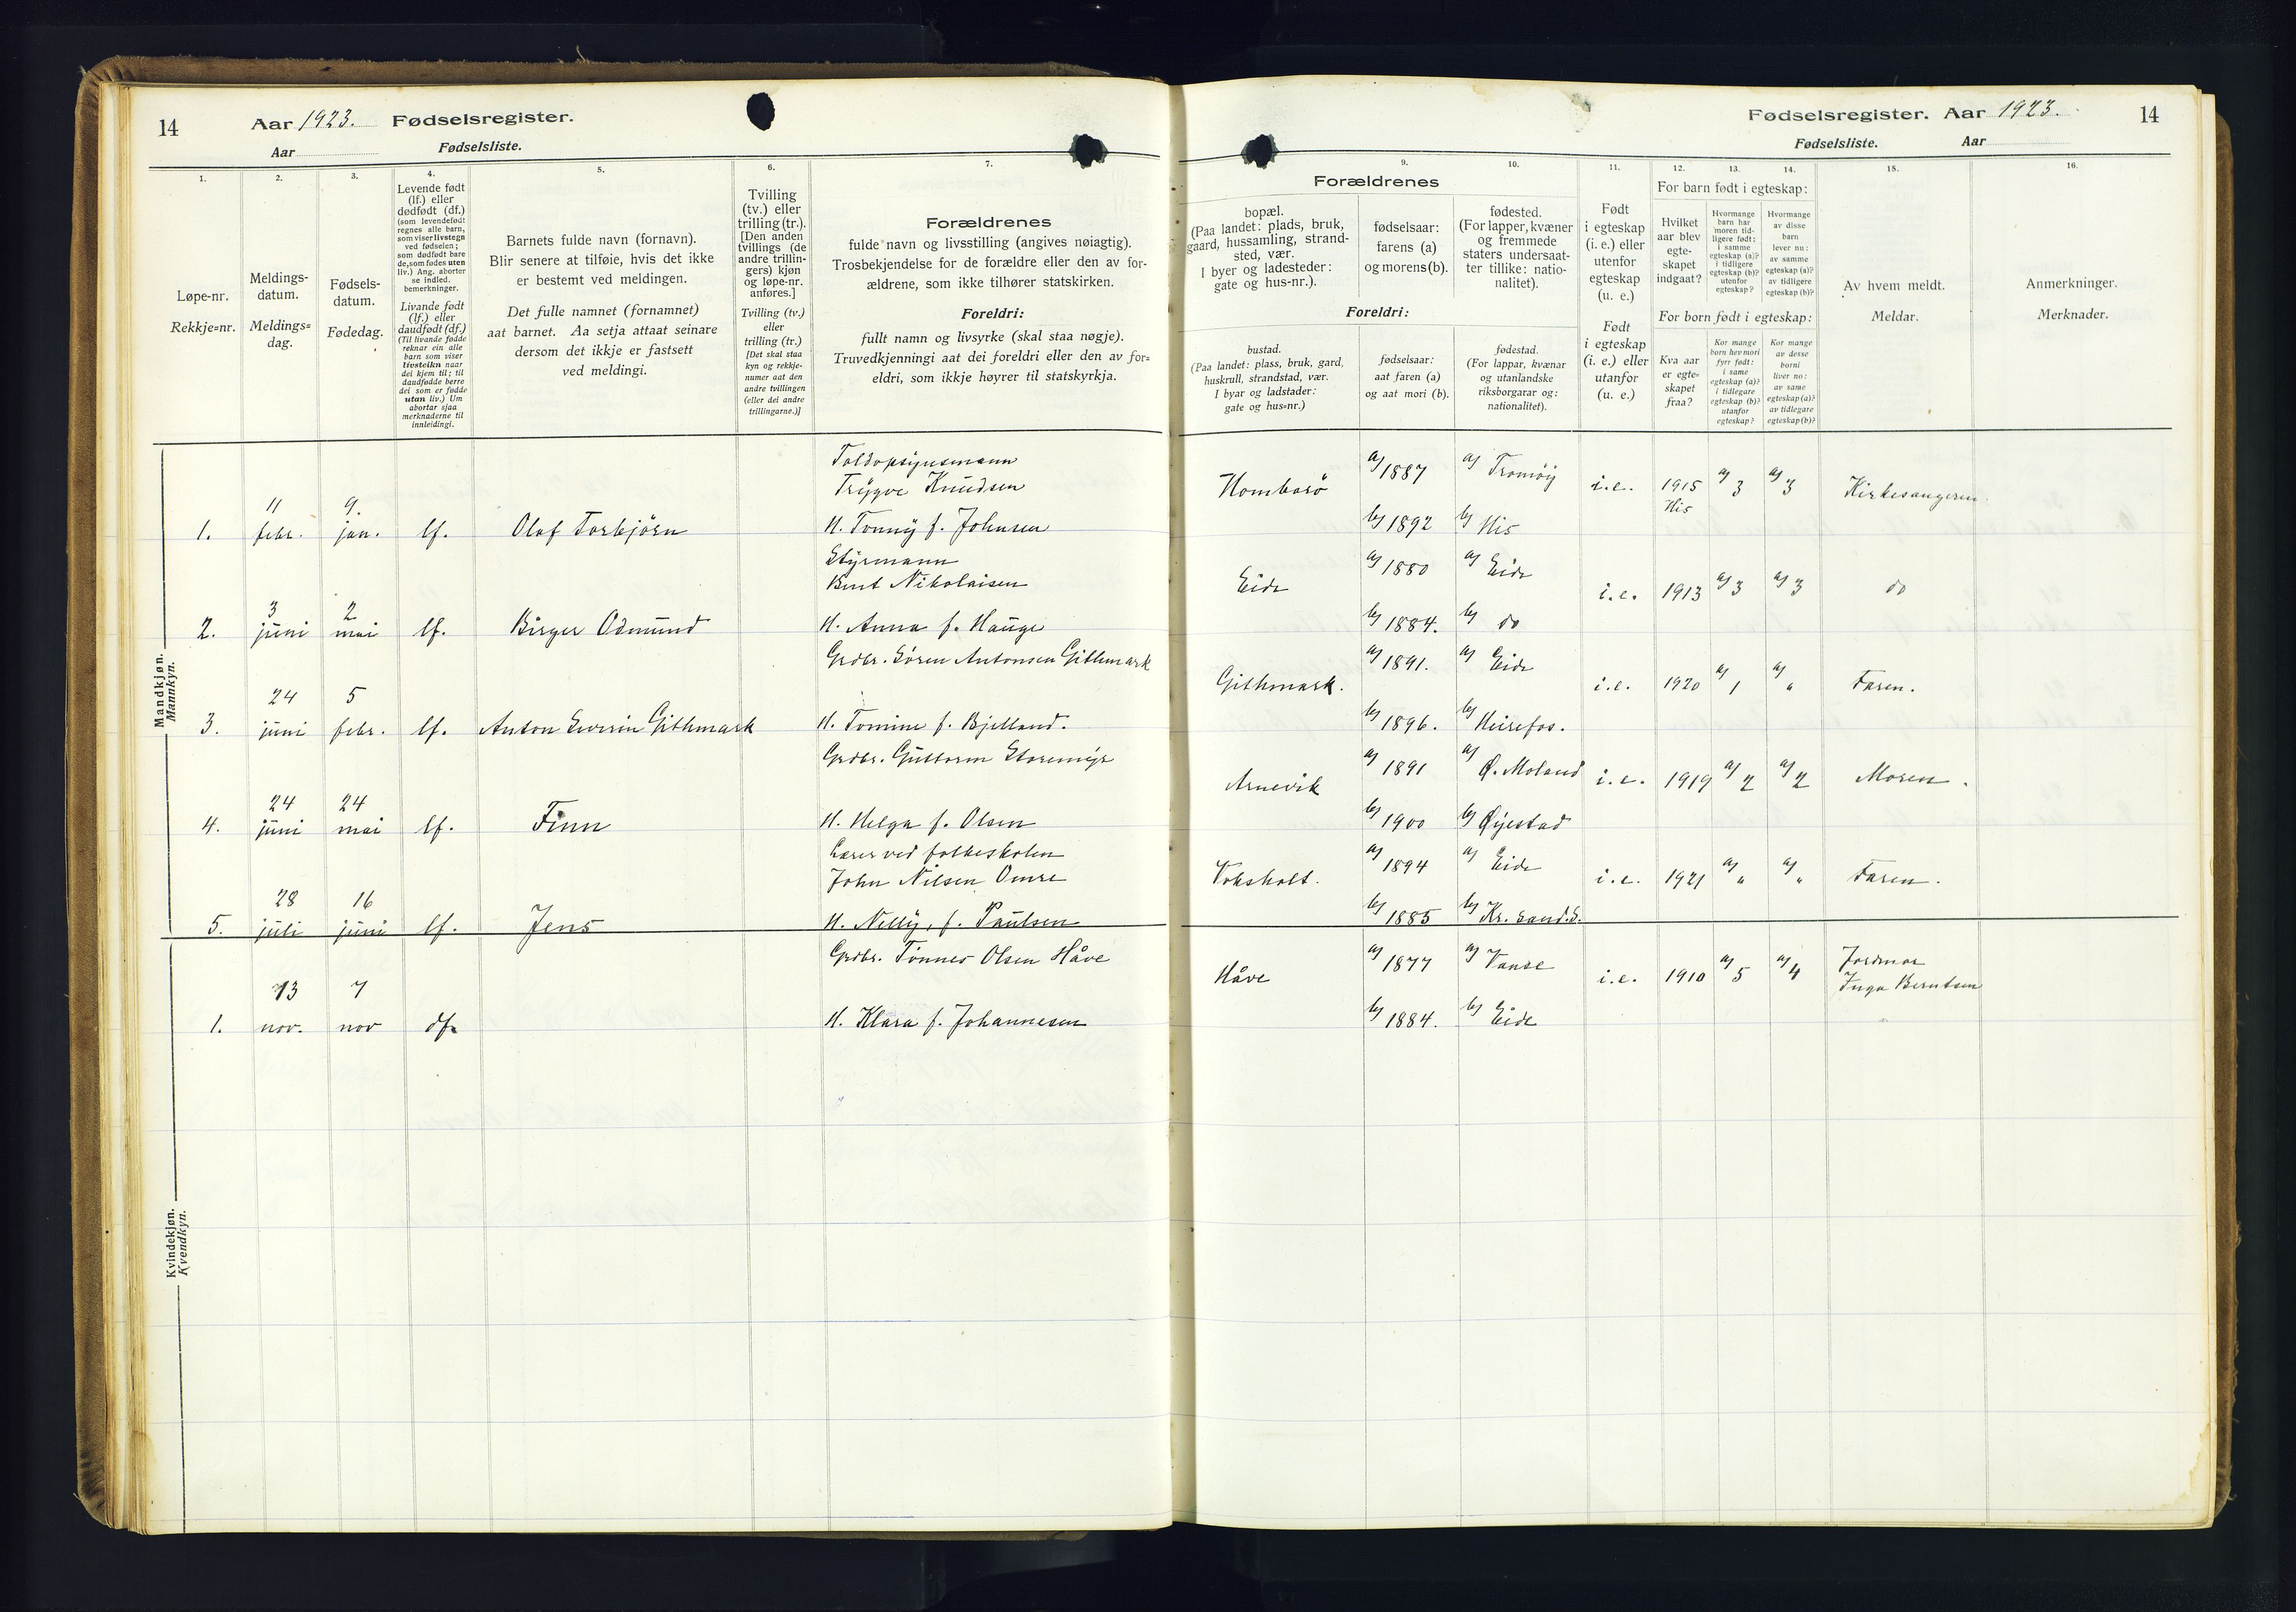 14
Aar 1923. Fødselsregister.
Aar Fødselsliste.
1.
Løpe-nr.
Rekkje=nr.
2.
Meldings-
datum.
Meldings=
dag.
3.
Fødsels-
datum.
Fødedag.
4.
Levende født
(lf.) eller
dødfødt (df.)
(som levendefødt
regnes alle barn,
som viser livstegn
ved fødselen;
som dødfødt bare
de, som fødes uten
liv.) Ang. aborter
se indled.
bemerkninger.
Livande født
(lf.) eller
daudfødt (df.)
(Til livande fødde
reknar ein alle
barn som viser
livsteikn naar
dei kjem til; til
daudfødde berre
dei som er fødde
utan liv.) Um
abortar sjaa
merknaderne til
innleidingi.
5.
Barnets fulde navn (fornavn).
Blir senere at tilføie, hvis det ikke
er bestemt ved meldingen.
Det fulle namnet (fornamnet)
aat barnet. Aa setja attaat seinare
dersom det ikkje er fastsett
ved meldingi.
6.
Tvilling
(tv.) eller
trilling (tr.).
[Den anden
tvillings (de
andre trillin-
gers) kjøn
og løpe-nr.
anføres.]
Tvilling (tv.)
eller
trilling (tr.)
[Det skal staa
kyn og rekkje-
numer aat den
andre tvillingen
(eller dei andre
trillingarne.)]
7.
Forældrenes
fulde navn og livsstilling (angives nøiagtig).
Trosbekjendelse for de forældre eller den av for-
ældrene, som ikke tilhører statskirken.
Foreldri:
fullt namn og livsyrke (skal staa nøgje).
Truvedkjenningi aat dei foreldri eller den av for=
eldri, som ikkje høyrer til statskyrkja.
Mandkjøn.
Mannkyn.
Toldopsynsmann
Trygve Knudsen
11 9.
1. febr. jan. lf. Olaf Torbjörn H. Tonny f. Johnsen
Styrmann
Bent Nikolaisen
3 2
2. juni mai lf. Birger Odmund H. Anna f. Hauge
Grdbr. Sören Antonsen Githmark
24 5
3. juni febr. lf. Anton Severin Githmark H. Tomine f. Bjelland.
Grdbr. Guttorm Storemyr
24 24
4. juni mai lf. Finn H. Helga f. Olsen
Lærer ved folkeskolen
John Nilsen Omre
28 16
5. juli juni lf. Jens H. Nelly, f. Paulsen
Kvindekjøn.
Kvendkyn.
Grdbr. Tönnes Olsen Håve
13 7
1. nov. nov df. H. Klara f. Johannesen
Fødselsregister. Aar 1923. 14
Fødselsliste. Aar
Forældrenes
bopæl.
(Paa landet: plads, bruk,
gaard, hussamling, strand-
sted, vær.
I byer og ladesteder:
gate og hus-nr.).
9.
fødselsaar:
farens (a)
og morens (b).
10.
fødested.
(For lapper, kvæner
og fremmede
staters undersaat-
ter tillike: natio-
nalitet).
Foreldri:
bustad.
(Paa landet: plass, bruk, gard,
huskrull, strandstad, vær.
I byar og ladstader:
gate og hus=nr.)
fødselsaar:
aat faren (a)
og aat mori (b).
fødestad.
(For lappar, kvænar
og utanlandske
riksborgarar og:
nationalitet).
11.
Født
i egteskap
(i. e.) eller
utenfor
egteskap
(u. e.)
Født
i egteskap
(i. e.) eller
utanfor
(u. e.)
12. 13. 14.
For barn født i egteskap:
Hvilket
aar blev
egte-
skapet
indgaat?
Hvormange
barn har
moren tid-
ligere født:
i samme
egteskap (a)?
i tidligere
egteskap (b)?
utenfor
egteskap?
Hvormange
av disse
barn
lever nu:
av samme
egteskap (a)?
av tidligere
egteskap (b)?
For born født i egteskap:
Kva aar
er egte=
skapet
fraa?
Kor mange
born hev mori
fyrr født:
i same
egteskap (a)?
i tidlegare
egteskap (b)?
utanfor
egteskap?
Kor mange
av desse
borni
liver no:
av same
egteskap (a)?
av tidlegare
egteskap (b)?
15.
Av hvem meldt.
Meldar.
16.
Anmerkninger.
Merknader.
Homborö a) 1887 a) Tromöy i.e. 1915 a) 3 a) 3 Kirkesangeren.
His
b) 1892 b) His
Eide a) 1880 a) Eide i.e. 1913 a) 3 a) 3 do
b) 1884. b) do
Githmark. a) 1891. a) Eide i.e. 1920 a) 1 a) " Faren.
b) 1896. b) Heirefos.
Arnevik a) 1891 a) Ø. Moland i.e. 1919 a) 2 a) 2 Moren.
b) 1900 b) Øyestad
Voksholt. a) 1894 a) Eide i.e. 1921 a) " a) " Faren.
b) 1885 b) Kr. sand.S.
Håve a) 1877 a) Vanse i.e. 1910 a) 5 a) 4 Jordmor
Inga Berntsen
b) 1884. b) Eide